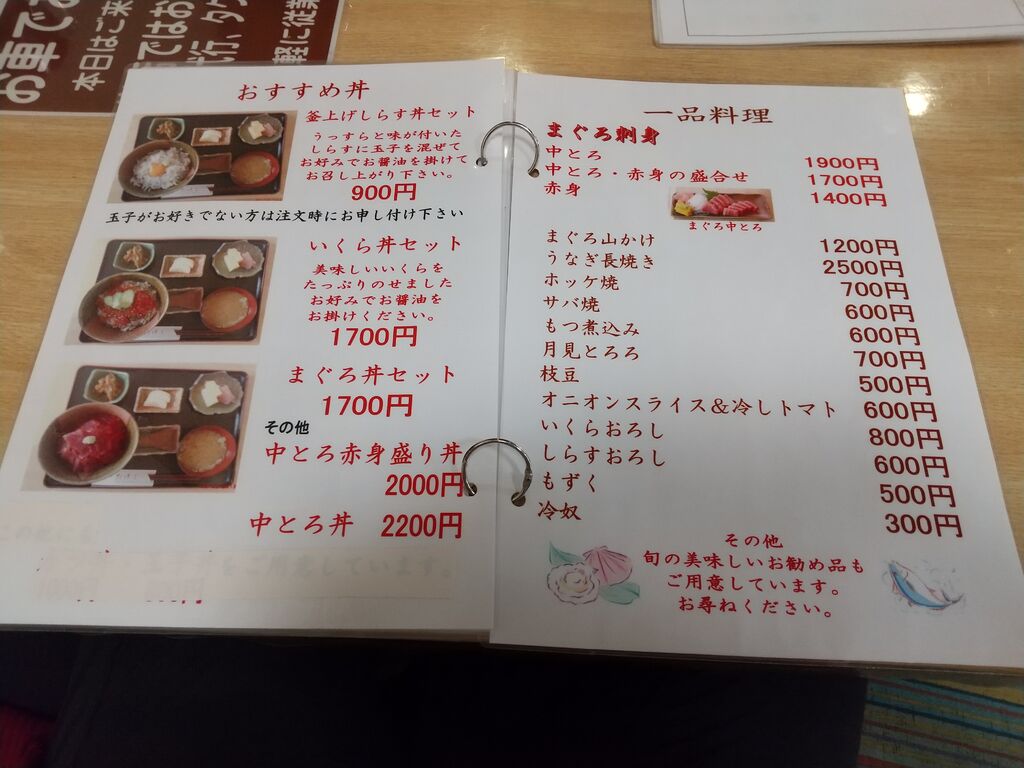 お車で
本日はご来
ではお
行、タク
軽に従業
おすすめ丼
釜上げしらす丼セット
うっすらと味が付いた
しらすに玉子を混ぜて
お好みでお醤油を掛けて
お召し上がり下さい。
900円
玉子がお好きでない方は注文時にお申し付け下さい
いくら丼セット
美味しいいくらを
たっぷりのせました
お好みでお醤油を
お掛けください。
1700円
まぐろ丼セット
1700円
その他
中とろ赤身盛り丼
2000円
中とろ丼 2200円
をご用意しています。
一品料理
まぐろ刺身
中とろ 1900円
中とろ・赤身の盛合せ 1700円
赤身 1400円
まぐろ中とろ
まぐろ山かけ 1200円
うなぎ長焼き 2500円
ホッケ焼 700円
サバ焼 600円
もつ煮込み 600円
月見とろろ 700円
枝豆 500円
オニオンスライス&冷しトマト 600円
いくらおろし 800円
しらすおろし 600円
もずく 500円
冷奴 300円
その他
旬の美味しいお勧め品も
ご用意しています。
お尋ねください。